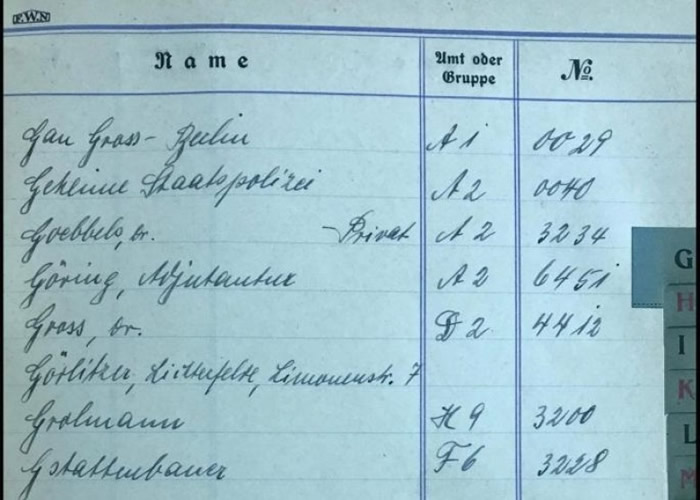 F.W.N
Name Amt oder Gruppe No.
Gau Gross-Berlin A 1 0029
Geheime Staatspolizei A 2 0040
Goebbels, Dr. - Privat A 2 3234
Göring, Adjutantur A 2 6451
Gross, Dr. D 2 4412
Görlitzer, Lichterfelde, Limonenstr. 7
Grolmann H 9 3200
Gstattenbauer F 6 3228
G
H
I
K
L
M